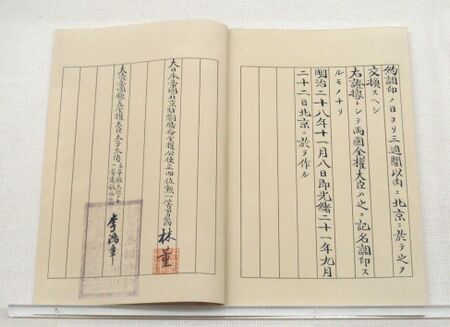 約調印ノ日ヨリ三週間以内ニ北京ニ於テ之ヲ
交換スヘシ
右證據トシテ兩國全權大臣ハ之ニ記名調印ス
ルモノナリ
明治二十八年十一月八日即光緒二十一年九月
二十二日北京ニ於テ作ル
大日本帝國北京駐劄特命全權公使正四位勲一等男爵 林董
大清帝國欽差全權大臣太子太傅文華殿大學士一等肅毅伯 李鴻章